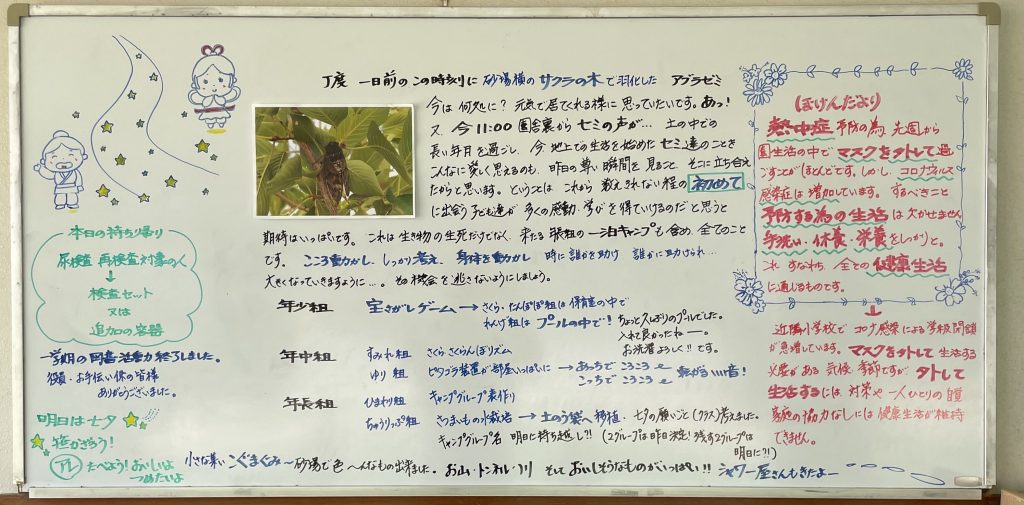 丁度 一日前の この時刻に 砂場横の サクラの木で羽化した アブラゼミ
今は 何処に? 元気で居てくれる様に 思っていたいです。あっ!
又、今 11:00 園舎裏から セミの声が… 土の中での
長い年月を過ごし、今、地上での生活を始めた セミ達のことを
こんなに愛しく思えるのも、昨日の尊い瞬間を見ること、そこに立ち会え
たからと思います。ということは これから 数えきれない程の 初めて
に出会う 子ども達が 多くの感動・学びを得ていけるのだと思うと
期待はいっぱいです。これは生き物の生死だけでなく、来たる 年長組の 一泊キャンプも含め、全てのこと
です。こころ動かし、しっかり考え、身体を動かし 時に誰かを助け 誰かに助けられ…
大きくなっていきますように…。その機会を逃さないようにしましょう。
年少組 宝さがしゲーム→さくら・たんぽぽ組は 保育室の中で
れんげ組は プールの中で! ちょっと久しぶりのプールでした。
入れて良かったねー。
お洗濯よろしく!!です。
年中組 すみれ組 さくらさくらんぼリズム
ゆり組 ピタゴラ装置が部屋いっぱいに→あっちで ころころ
こっちで ころころ
年長組 ひまわり組 キャンプグループ表作り
ちゅうりっぷ組 さつまいも水栽培→土のう袋へ移植、七夕の願いごと(クラス)考えました。
キャンプグループ名 明日に持ち越し?! (2グループは昨日決定! 残す2グループは
明日に?!)
小さな集い こぐまぐみ〜砂場で色〜んなもの出来ました。お山・トンネル・川 そして おいしそうなものがいっぱい!! シャワー屋さんもきたよー
本日の持ち帰り
尿検査 再検査対象の人
↓
検査セット
又は
追加の容器
一学期の図書活動 終了しました。
役員・お手伝い係の皆様
ありがとうございました。
明日は七夕
笹かざろう!
たべよう! おいしいよ
つめたいよ
ほけんだより
熱中症 予防の為、先週から
園生活の中で マスクを外して過
ごすことが ほとんどです。しかし、コロナウイルス
感染症は増加しています。するべきこと
予防する為の生活は欠かせません
手洗い・休養・栄養をしっかりと。
これ すなわち、全ての健康生活
に通じるものです。
↓
近隣小学校で コロナ感染による学級閉鎖
が急増しています。マスクを外して 生活する
必要がある 気候・季節ですが 外して
生活するには 対策や 一人ひとりの自覚
家庭の協力なしには 健康生活が維持
できません。